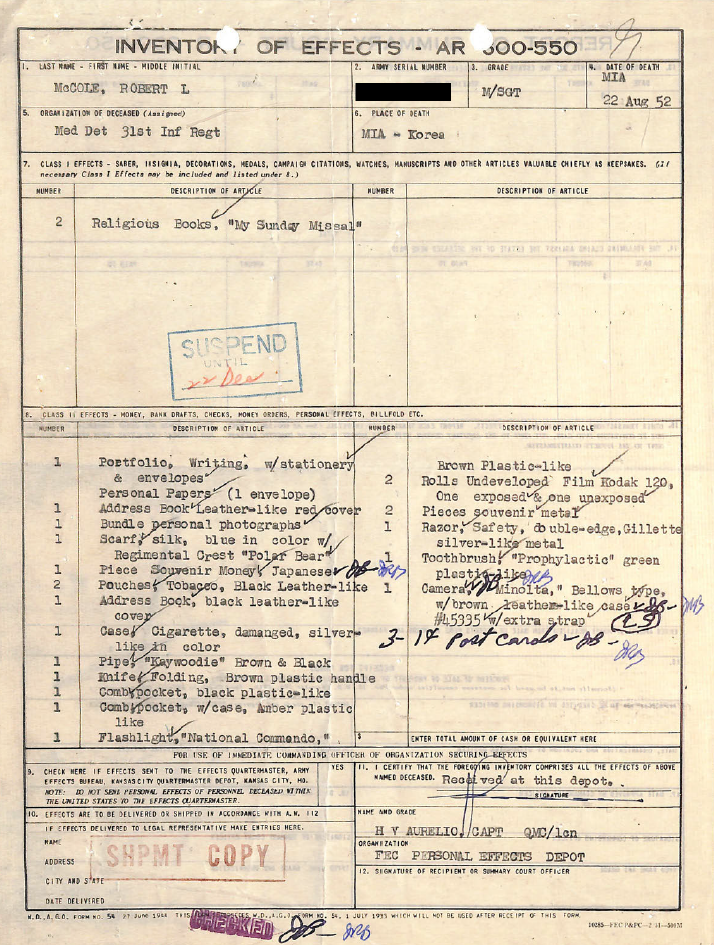 INVENTORY OF EFFECTS - AR 600-550
1. LAST NAME - FIRST NAME - MIDDLE INITIAL
McCOLE, ROBERT L
2. ARMY SERIAL NUMBER
3. GRADE
M/SGT
4. DATE OF DEATH
MIA
22 Aug 52
5. ORGANIZATION OF DECEASED (Assigned)
Med Det 31st Inf Regt
6. PLACE OF DEATH
MIA - Korea
7. CLASS I EFFECTS - SABER, INSIGNIA, DECORATIONS, MEDALS, CAMPAIGN CITATIONS, WATCHES, MANUSCRIPTS AND OTHER ARTICLES VALUABLE CHIEFLY AS KEEPSAKES. (If
necessary Class I Effects may be included and listed under 8.)
NUMBER DESCRIPTION OF ARTICLE NUMBER DESCRIPTION OF ARTICLE
2 Religious Books, "My Sunday Missal"
SUSPEND
UNTIL
22 Dec
8. CLASS II EFFECTS - MONEY, BANK DRAFTS, CHECKS, MONEY ORDERS, PERSONAL EFFECTS, BILLFOLD ETC.
NUMBER DESCRIPTION OF ARTICLE NUMBER DESCRIPTION OF ARTICLE
1 Portfolio, Writing, w/stationery
& envelopes
Personal Papers (1 envelope)
1 Address Book Leather-like red cover
1 Bundle personal photographs
1 Scarf, silk, blue in color w/
Regimental Crest "Polar Bear"
1 Piece Souvenir Money, Japanese
2 Pouches, Tobacco, Black Leather-like
1 Address Book, black leather-like
cover
1 Case, Cigarette, damaged, silver-
like in color
1 Pipe, "Kaywoodie" Brown & Black
1 Knife, Folding, Brown plastic handle
1 Comb, pocket, black plastic-like
1 Comb, pocket, w/case, Amber plastic
like
1 Flashlight, "National Commendo,"
Brown Plastic-like
2 Rolls Undeveloped Film Kodak 120,
One exposed & one unexposed
2 Pieces souvenir metal
1 Razor, Safety, double-edge, Gillette
silver-like metal
1 Toothbrush, "Prophylactic" green
plastic-like
1 Camera, "Minolta," Bellows type,
w/brown leathem-like case
#45335 w/extra strap
3- 1¢ Post Cards
$ ENTER TOTAL AMOUNT OF CASH OR EQUIVALENT HERE
FOR USE OF IMMEDIATE COMMANDING OFFICER OF ORGANIZATION SECURING EFFECTS
9. CHECK HERE IF EFFECTS SENT TO THE EFFECTS QUARTERMASTER, ARMY
EFFECTS BUREAU, KANSAS CITY QUARTERMASTER DEPOT, KANSAS CITY, MO.
NOTE: DO NOT SEND PERSONAL EFFECTS OF PERSONNEL DECEASED WITHIN
THE UNITED STATES TO THE EFFECTS QUARTERMASTER.
YES
11. I CERTIFY THAT THE FOREGOING INVENTORY COMPRISES ALL THE EFFECTS OF ABOVE
NAMED DECEASED. Received at this depot.
SIGNATURE
10. EFFECTS ARE TO BE DELIVERED OR SHIPPED IN ACCORDANCE WITH A.W. 112
IF EFFECTS DELIVERED TO LEGAL REPRESENTATIVE MAKE ENTRIES HERE.
NAME
ADDRESS
CITY AND STATE
DATE DELIVERED
SHPMT COPY
NAME AND GRADE
H V AURELIO, CAPT QMC/lcn
ORGANIZATION
FEC PERSONAL EFFECTS DEPOT
12. SIGNATURE OF RECIPIENT OR SUMMARY COURT OFFICER
W.D., A.G.O. FORM NO. 54 27 JUNE 1944 THIS FORM SUPERSEDES W.D., A.G.O. FORM NO. 54, 1 JULY 1933 WHICH WILL NOT BE USED AFTER RECEIPT OF THIS FORM.
CHECKED